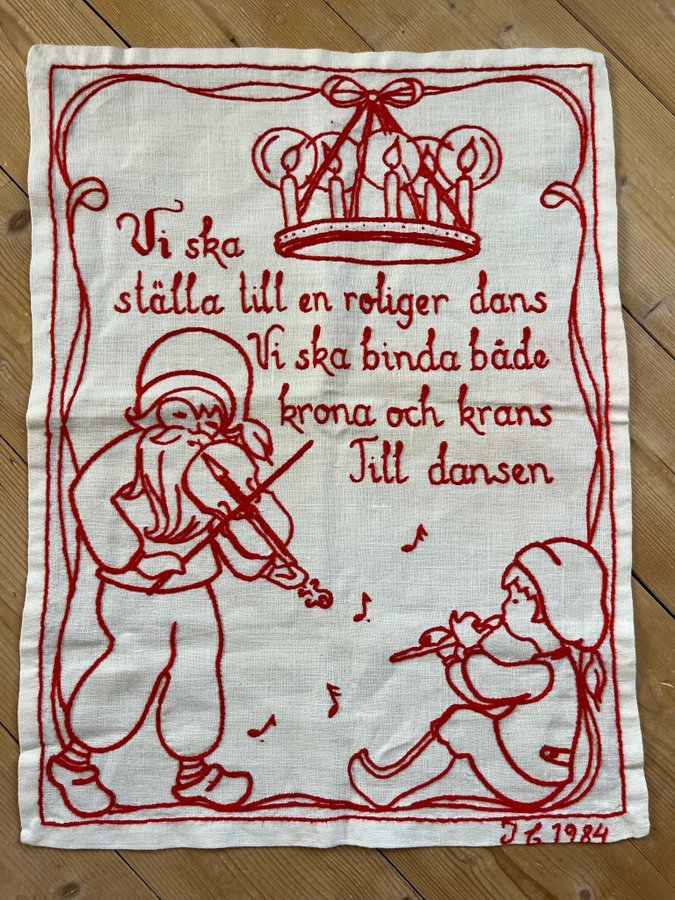 Vi ska
ställa till en roliger dans
Vi ska binda både
krona och krans
Till dansen
J G 1984